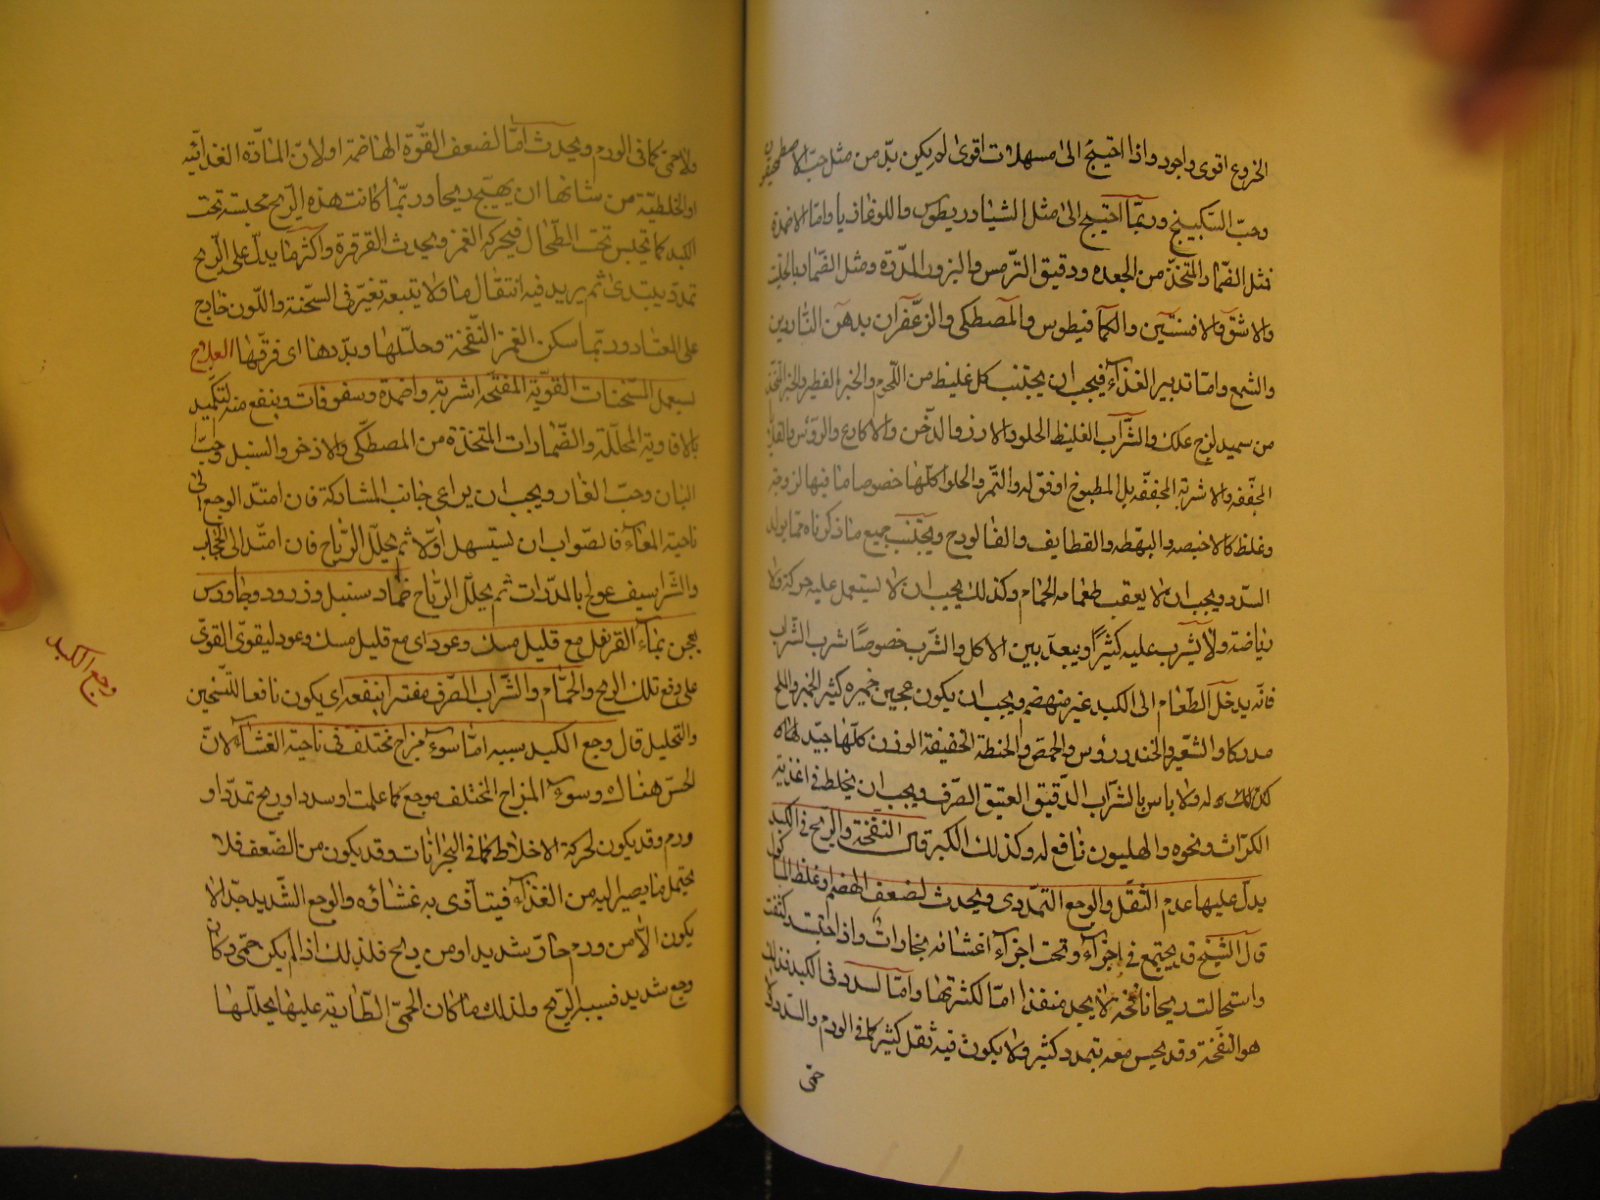 الخروع اقوى واجود واذا احتيج الى مسهلات اقوى لم يكن بدّ من مثل حبّ الاصطمحيقون
وحبّ السكبينج وربّما احتيج الى مثل الشيادريطوس واللوغاذيا وامّا الاضمدة
فمثل الضّماد المتّخذ من الجعده ودقيق الترمس والبزور المدرّة ومثل الضّماد بالحلتيت
والاشق والافسنتين والكمافيطوس والمصطكى والزعفران بدهن الناردين
والشمع وامّا تدبير الغذاء فيجب ان يجتنب كل غليظ من اللّحم والخبز الفطير والخبز المتّخذ
من سميد لزج علك والشّراب الغليظ الحلو والارز والدّخن والاكارع والرؤس والقلايا
المجفّفه والاشربة المجففّه بل المطبوخ اوفق له والتّمر والحلوا كلّها خصوصا ما فيها لزوجة
وغلظ كالاخبصه والبهطه والقطايف والفالودج ويجتنب جميع ما ذكرناه ممّا يولد
السّدد ويجب ان لا يعقب طعامه الحمّام وكذلك يجب ان لا يستعمل عليه حركة ولا
رياضة ولا يشرب عليه كثيرًا ويبعد بين الاكل والشّرب خصوصًا شرب الشّراب
فانّه يدخل الطّعام الى الكبد غير منهضم ويجب ان يكون عجين خبزه كثير الخمير والملح
مدركا والشّعير والخندروس والحمّص والحنطة الخفيفة الوزن كلّها جيّد له
كذلك له ولا باس بالشّراب الدّقيق العتيق الصّرف ويجب ان يخلط في اغذيته
الكرّاث ونحوه والهليون نافع له وكذلك الكبر قال النّفخة والرّيح في الكبد
يدلّ عليها عدم الثّقل والوجع التمدّدى ويحدث لضعف الهضم او غلظ الماكول
قال الشّيخ قد يجتمع في اجزآء وتحت اجزآء اغشائه بخارات واذا احتبست كثفت
واستحالت ريحا نافخة لا يجد منفذا امّا لكثرتها وامّا لسدد في الكبد فذلك
هو النّفخة وقد يحس معه بتمدد كثير ولا يكون فيه ثقل كثير كما في الورم والسّدد ولا
حمّى
ولا حمّى كما في الورم ويحدث امّا لضعف القوّة الهاضمة او لانّ المادّة الغذائيّة
او الخلطيّة من شانها ان يهيّج ريحا وربّما كانت هذه الرّيح محتبسة تحت
الكبد كما تحتبس تحت الطّحال فيحركه الغمز ويحدث القرقرة واكثر ما يدلّ على الرّيح
تمدّد يبتدئ ثم يزيد فيه انتقال ما ولا يتبعه تغيّر في السّحنة واللّون خارج
على المعتاد وربّما سكن الغمز النّفخة وحلّلها وبدّدها اى فرّقها العلاج
يستعمل المسخنات القويّة المفتّحه اشربة واضمدة وسفوفات وينفع منه التكميد
بالافاوية المحلّلة والضّمادات المتخذة من المصطكى والاذخر والسنبل وحبّ
البان وحبّ الغار ويجب ان يراعى جانب المشاركة فان امتدّ الوجع الى
ناحية المعآء فالصّواب ان يستسهل اوّلا ثم يحلّل الرّياح فان امتدّ الى الحجاب
والشّراسيف عولج بالمدرّات ثم يحلّل الرّياح ضماد سنبل وزرورد وجاورس
يعجن بمآء القرنفل مع قليل مسك وعود اى مع قليل مسك وعود ليقوى القوىّ
على دفع تلك الريح والحمّام والشّراب الصّرف مفترا ينفعه اى يكون نافعا للتّسخين
والتحليل قال وجع الكبد سببه امّا سوء مزاج مختلف في ناحية الغشآء لانّ
الحسّ هناك وسوء المزاج المختلف موجع كما علمت او سدد او ريح تمدّد او
ورم وقد يكون لحركة الاخلاط كما في البحرانات وقد يكون من الضّعف فلا
يحتمل ما يصير اليه من الغذآء فيتاذّى به غشاؤه والوجع الشّديد جدّا لا
يكون الّا من ورم حارّ شديد او من ريح فلذلك اذا لم يكن حمّى وكان
وجع شديد فسببه الرّيح ولذلك ما كان الحمّى الطّارية عليها يحلّلها
وجع الكبد